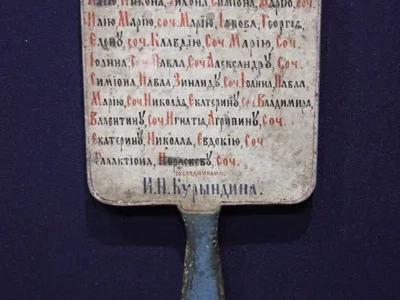 Илію, Никона, Зилона, Симиона, Марію, соч.
Илію Марію, соч. Марію, Іакова, Георгія,
Едону, соч. Клавдію, Соч Марію, Соч.
Іоанна, Соч Павла, Соч Александру, Соч.
Симіона, Павла Зинаиду, соч. Іоанна, Павла,
Марію, соч. Николая, Екатерину, соч. Владимира,
Валентину, соч. Игнатія, Агрипину, соч.
Екатерину, Николая, Евдокію, соч
Галактіона, Параскеву, соч.
И.Н. Курындина.